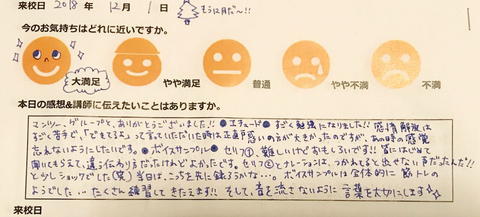 来校日 2018 年 12 月 1 日 もう12月だ〜!!
今のお気持ちはどれに近いですか。
大満足 やや満足 普通 やや不満 不満
本日の感想&講師に伝えたいことはありますか。
マンツー、グループと、ありがとうございました!! ●エチュード● すごく勉強になりました!! 感情解放は
すごく苦手で、「できてるよ」って言っていただいた時は正直戸惑いの方が大きかったのですが、あの時の感覚
忘れないようにしたいです。●ボイスサンプル● セリフ①、難しいけどおもしろいです!! 皆にはじめて
聞いてもらえて、違う伝わり方だったけれどよかったです。セリフ②とナレーションは、つかれてると出せない音だったんだ!!
と少しショックでした(笑) 当日は、こっちを先に録ろうかな…。ボイスサンプルは全体的に筋トレの
ようでした… たくさん練習してきたえます!! そして、音を流さないように 言葉を大切にします
来校日